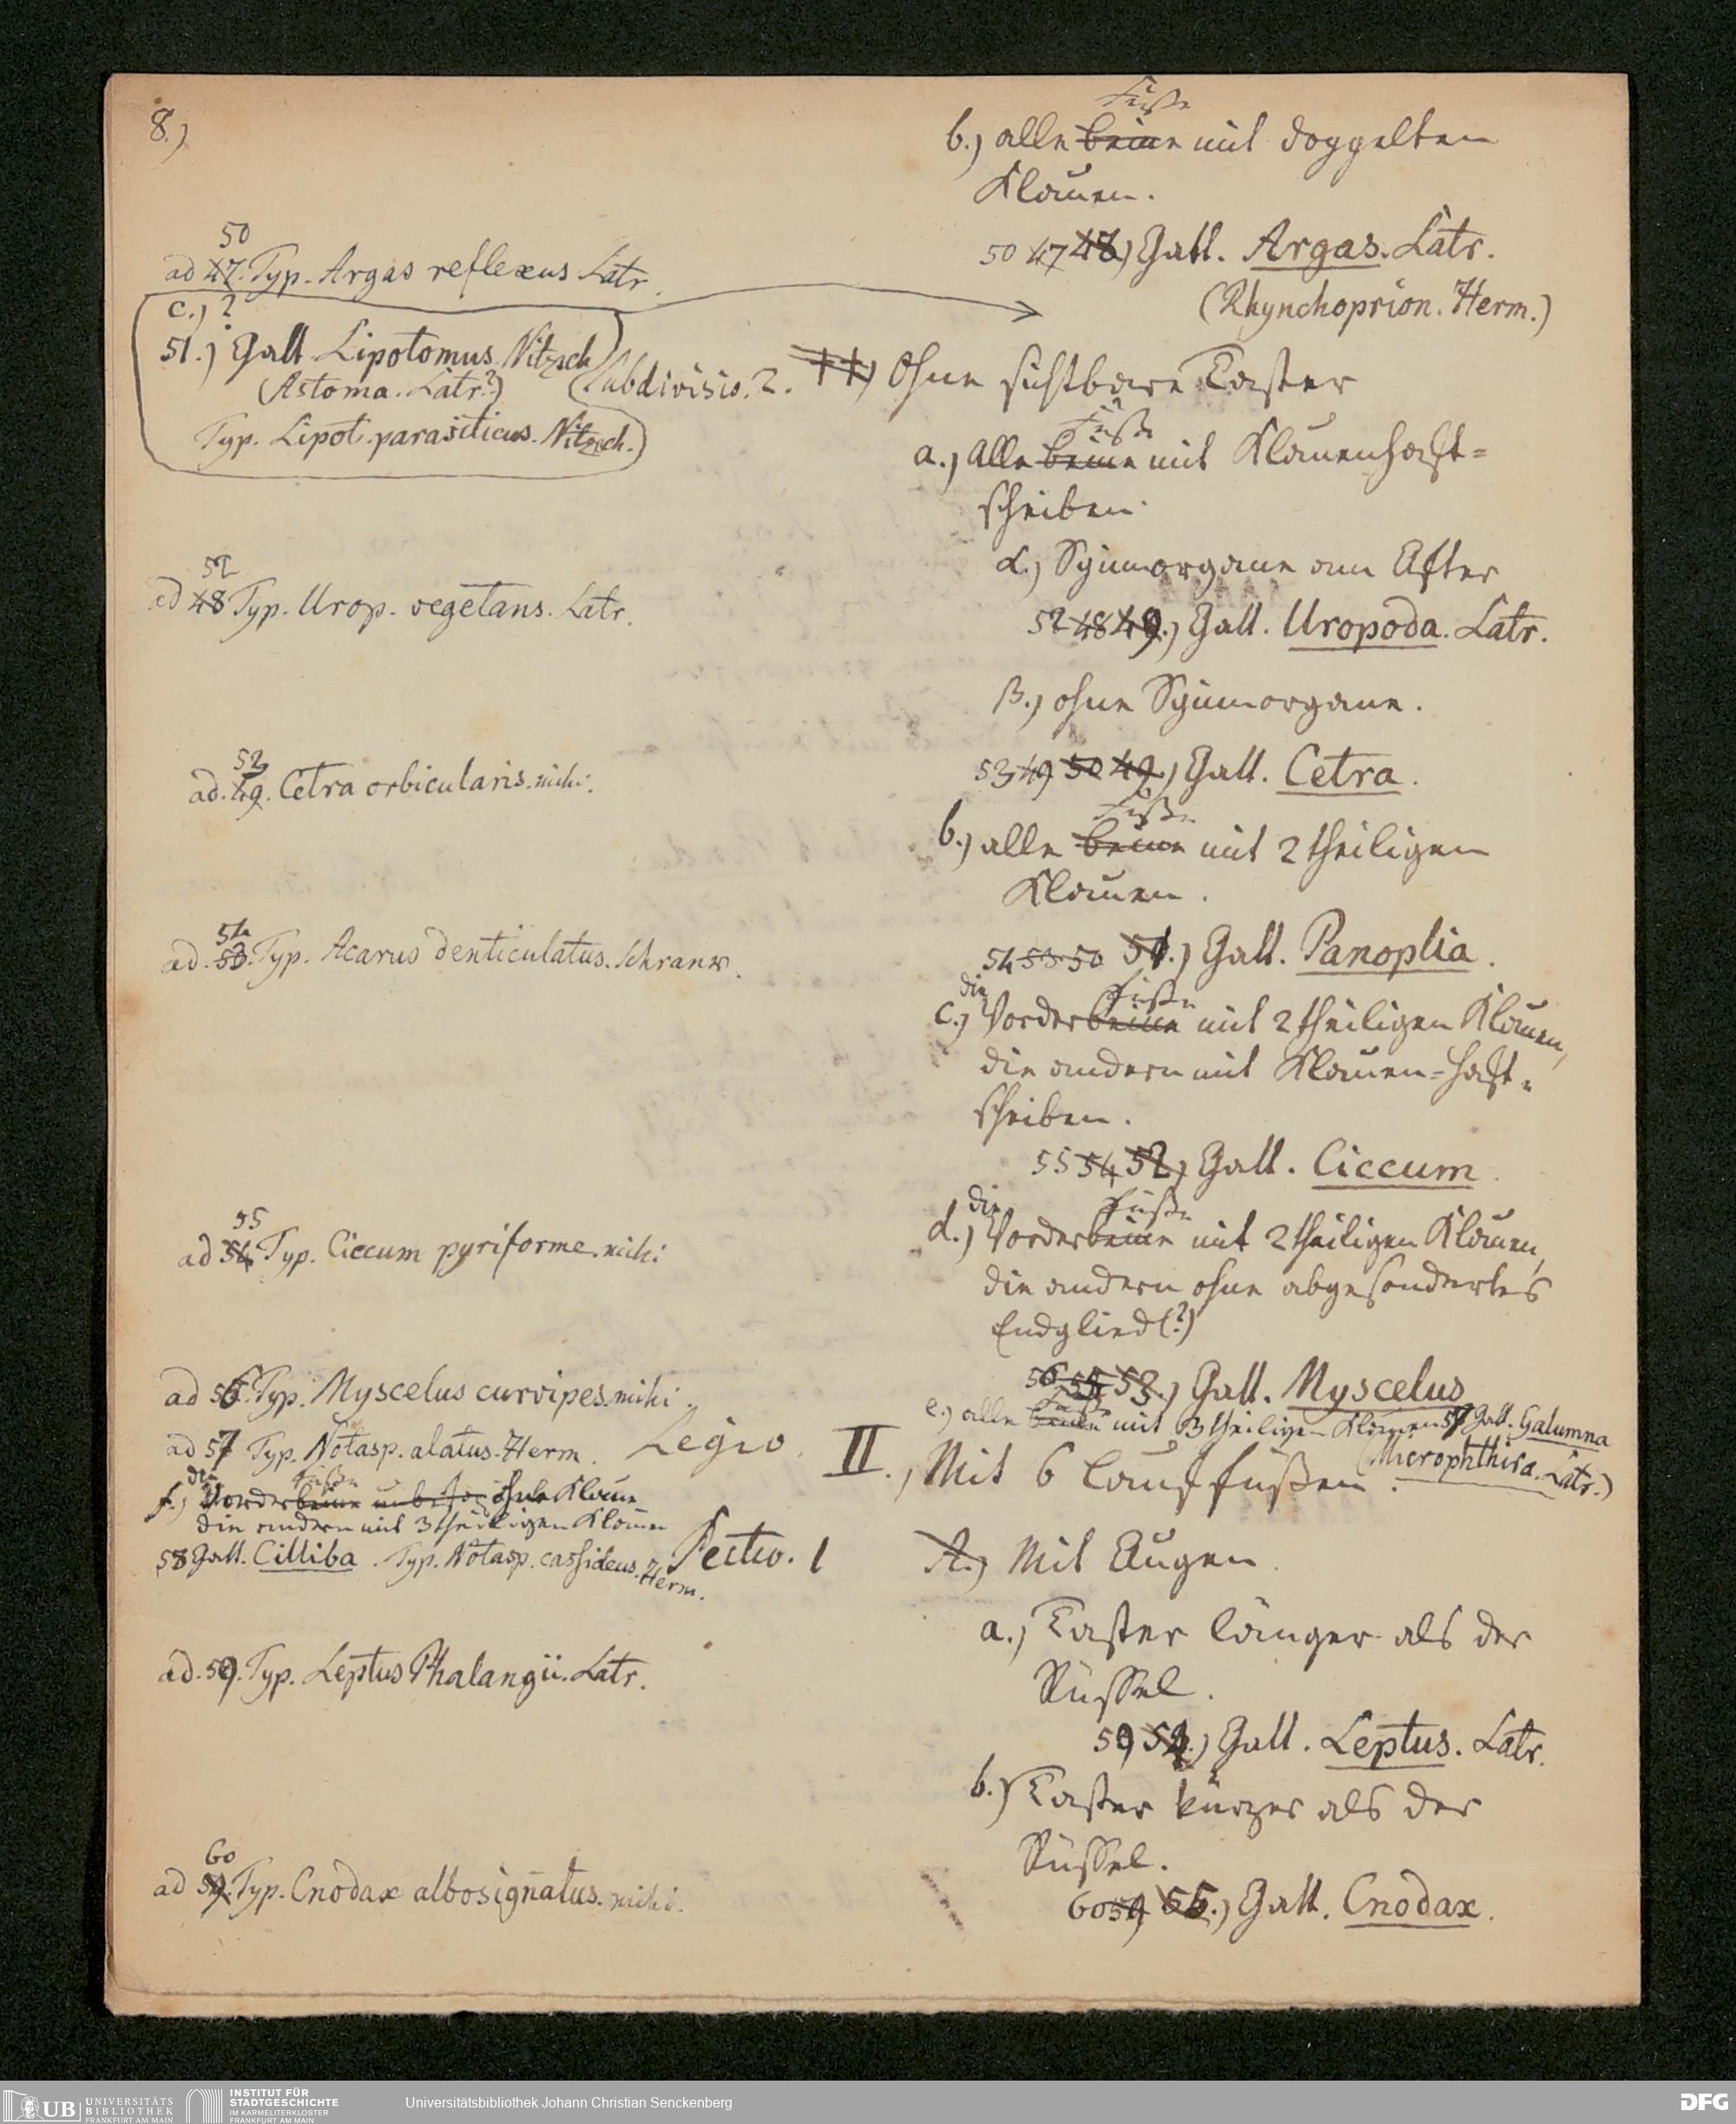 8.)
Füße
b.) alle beine mit doppelten
Klauen.
50 47 48) Gatt. Argas. Latr.
(Rhynchoprion. Herm.)
50
ad 47. Typ. Argas reflexus Latr.
c.) ?
51.) Gatt Lipotomus. Nitzsch
(Astoma. Latr?)
Typ. Lipot. parasiticus. Nitzsch.
Subdivisio. 2. ††) Ohne sichtbare Taster
Füße
a.) Alle beine mit Klauenhaft=
scheiben.
α.) Spinnorgane am After
52 48 49.) Gatt. Uropoda. Latr.
52
ad 48 Typ. Urop. vegetans. Latr.
β.) ohne Spinnorgane.
53 49 50 49.) Gatt. Cetra.
53
ad. 49. Cetra orbicularis. mihi.
Füße
b.) alle beine mit 2 theiligen
Klauen.
54 53 50 51.) Gatt. Panoplia.
54
ad. 53. Typ. Acarus denticulatus. Schrank.
die Füße
c.) Vorderbeine mit 2 theiligen Klauen,
die andern mit Klauen=haft=
scheiben.
55 54 52) Gatt. Ciccum
55
ad 54 Typ. Ciccum pyriforme. mihi.
die Füße
d.) Vorderbeine mit 2 theiligen Klauen,
die andern ohne abgesondertes
Endglied(?)
56 53.) Gatt. Myscelus
ad 56. Typ. Myscelus curvipes. mihi.
Füße
e.) alle beine mit 3 theilige Klauen 57 Gatt. Galumna
(Microphthira. Latr.)
ad 57 Typ. Notasp. alatus. Herm.
die Füße
f.) Vorderbeine ohne Klaue
die andern mit 3 theiligen Klauen
58 Gatt. Cilliba. Typ. Notasp. cassideus. Herm.
Legio II.) Mit 6 Lauffüßen.
Sectio. 1 A.) Mit Augen.
a.) Taster länger als der
Rüssel.
59 54.) Gatt. Leptus. Latr.
ad. 59. Typ. Leptus Phalangii. Latr.
b.) Taster kürzer als der
Rüssel.
60 59 55.) Gatt. Cnodax.
60
ad 59. Typ. Cnodax albosignatus. mihi.
UB UNIVERSITÄTS
BIBLIOTHEK
FRANKFURT AM MAIN
INSTITUT FÜR
STADTGESCHICHTE
IM KARMELITERKLOSTER
FRANKFURT AM MAIN
Universitätsbibliothek Johann Christian Senckenberg
DFG